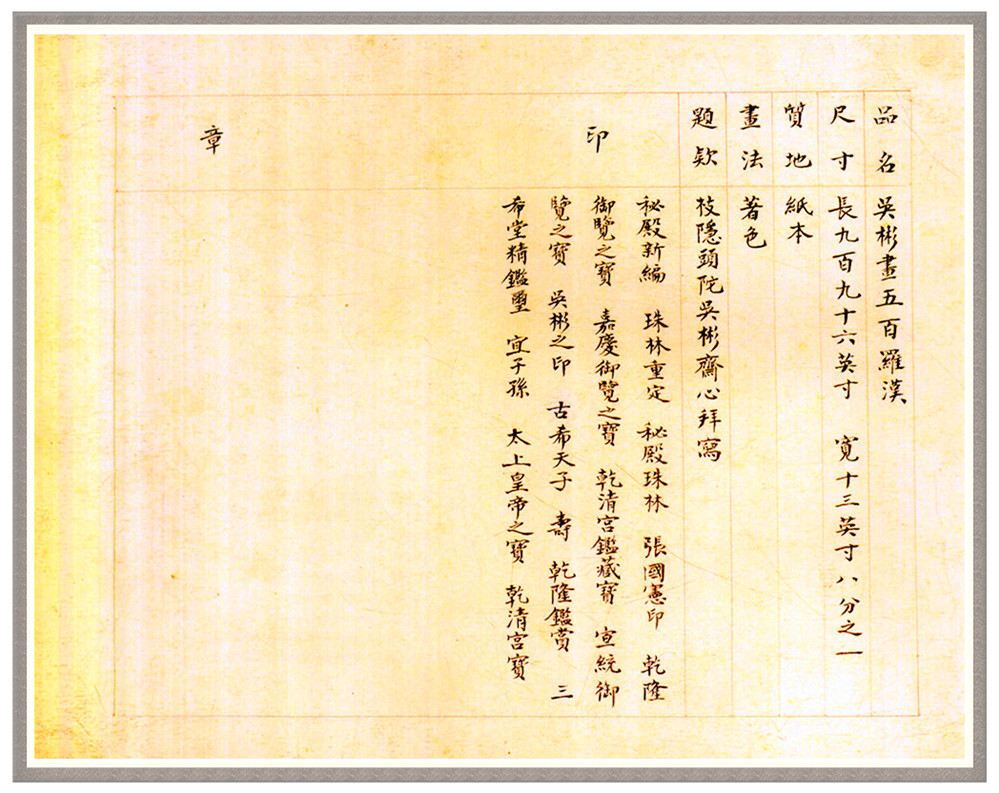 品名 吳彬畫五百羅漢
尺寸 長九百九十六英寸 寬十三英寸八分之一
質地 紙本
畫法 著色
題欵 枝隱頭陀吳彬齋心拜寫
印章
秘殿新編 珠林重定 秘殿珠林 張國憲印 乾隆
御覽之寶 嘉慶御覽之寶 乾清宮鑑藏寶 宣統御
覽之寶 吳彬之印 古希天子 壽 乾隆鑑賞 三
希堂精鑑璽 宜子孫 太上皇帝之寶 乾清宮寶